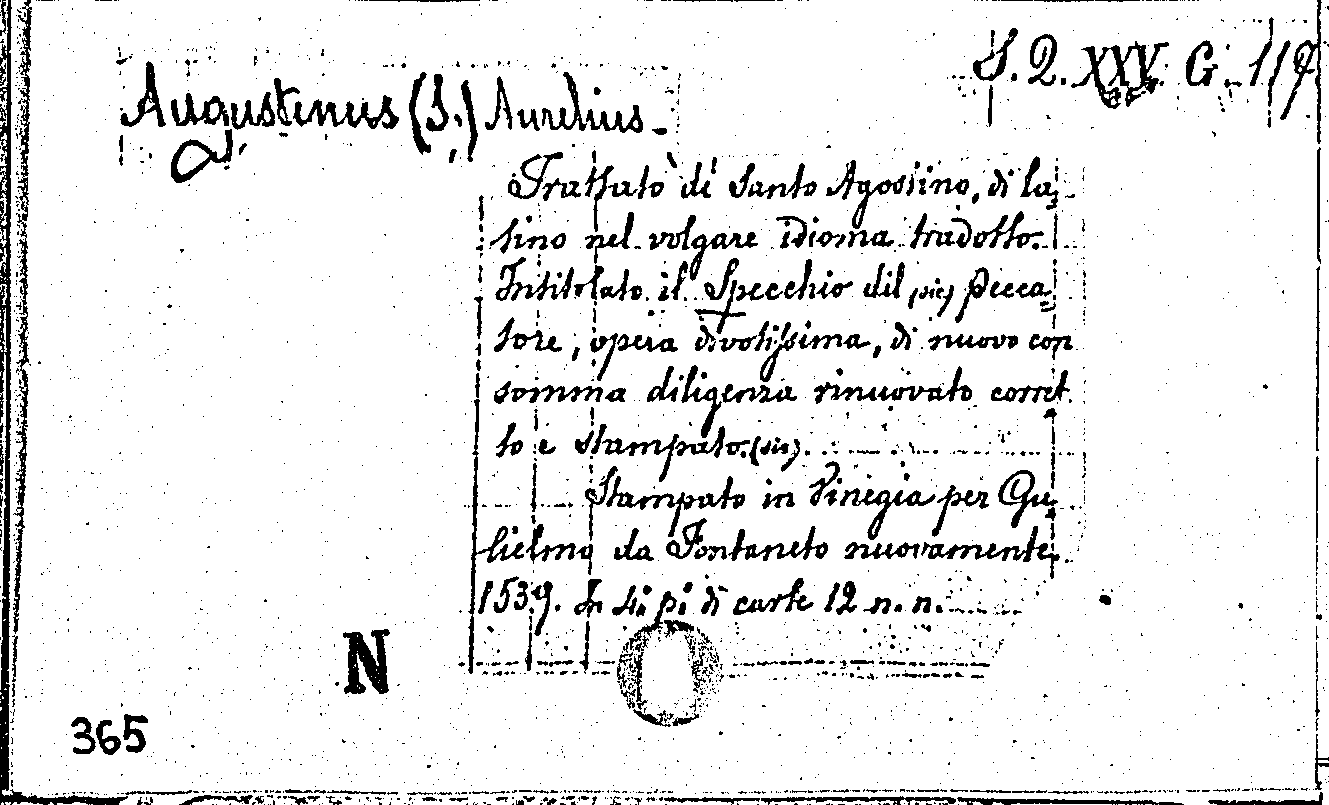 S. Q. XXV. G. 117
Augustinus (S.) Aurelius.
Trattato di Santo Agostino, di la=
tino nel volgare idioma tradotto.
Intitolato il Specchio dil (sic) pecca=
tore, opera divotissima, di nuovo con
somma diligenza rinuovato corret
to e stampato. (sic).
Stampato in Vinegia per Gu
lielmo da Fontaneto nuovamente.
1539. In di carte 12 n. n.
N
365